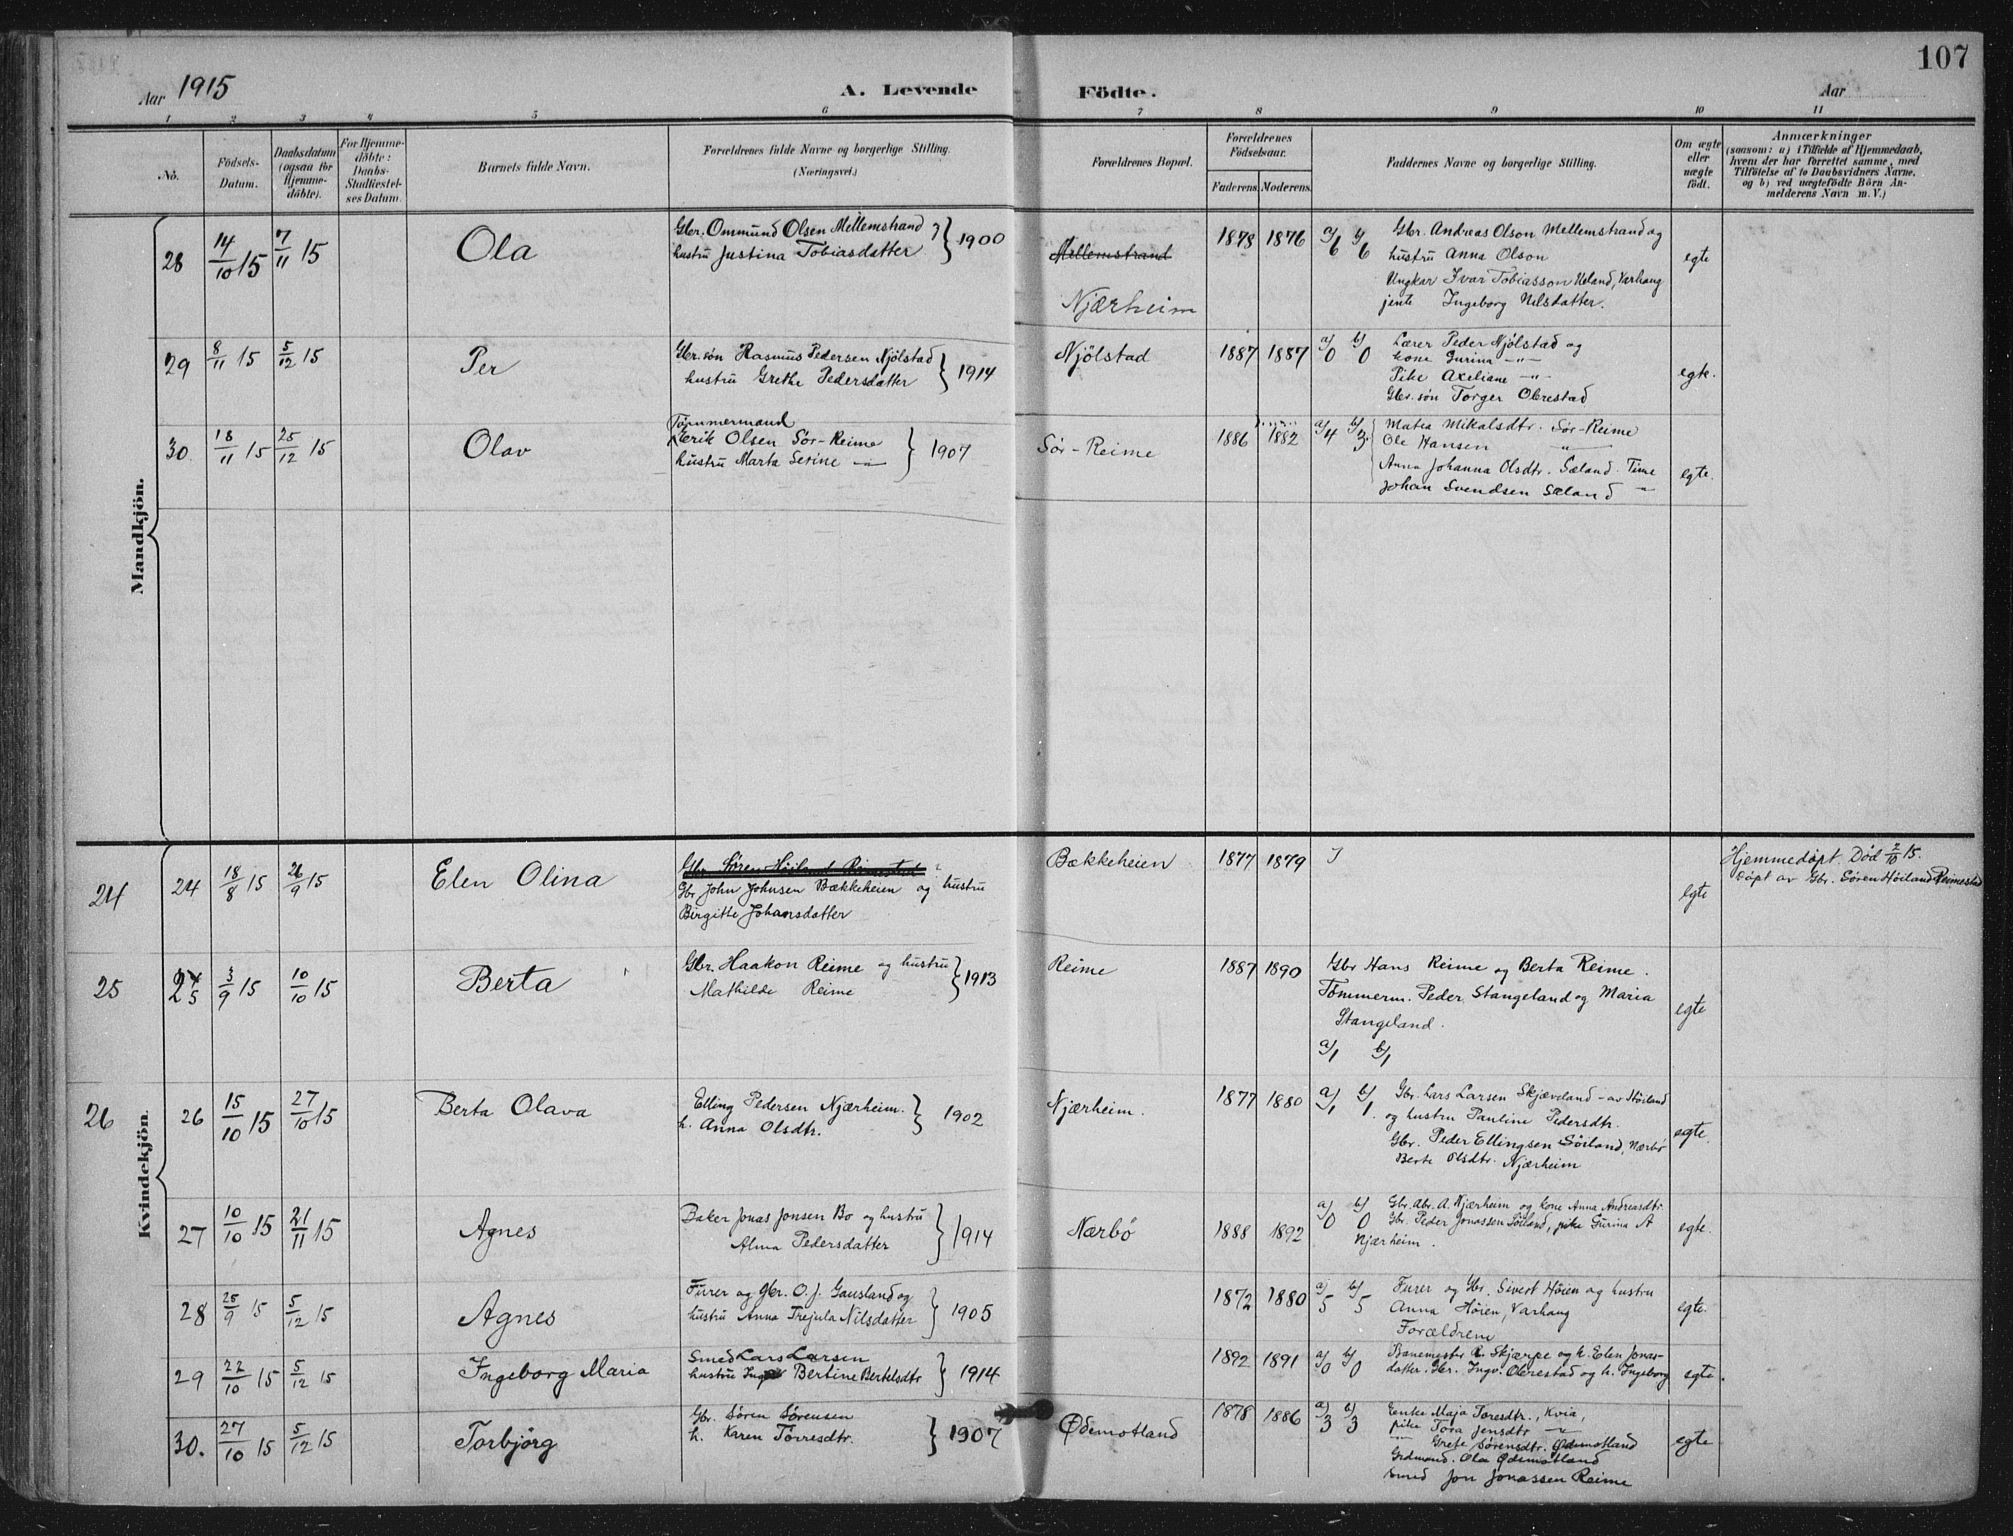 107
Aar 1915
A. Levende
Födte.
Aar
1 2 3 4 5 6 7 8 9 10 11
No.
Födsels-Datum.
Daabsdatum (ogsaa for Hjemmedöbte).
For Hjemmedöbte: Daabs-Stadfæstelses Datum.
Barnets fulde Navn.
Forældrenes fulde Navne og borgerlige Stilling.
(Næringsvei.)
Forældrenes Bopæl.
Forældrenes Födselsaar.
Faderens. Moderens.
Faddernes Navne og borgerlige Stilling.
Om ægte eller uægte födt.
Anmærkninger
(saasom: a) i Tilfælde af Hjemmedaab,
hvem der har forrettet samme, med
Tilföielse af to Daabsvidners Navne,
og b) ved uægtefödte Börn An-
melderens Navn m. V.)
Mandkjön.
28 14/10 15 7/11 15 Ola
Gbr. Ommund Olsen Mellemstrand
hustru Justina Tobiasdatter } 1900
Mellemstrand
Njærheim
1878 1876 a/6 b/6
Gbr. Andreas Olson Mellemstrand og
hustru Anna Olson
Ungkar Ivar Tobiasson Ueland, Varhaug
jente Ingeborg Nilsdatter.
egte
29 8/11 15 5/12 15 Per
Gbr. søn Rasmus Pedersen Njölstad
hustru Grethe Pedersdatter } 1914
Njölstad
1887 1887 a/0 b/0
Lærer Peder Njölstad og
kone Gurina -"-
Pike Axeliane -"-
Gbr. søn Torger Obrestad
egte.
30 18/11 15 25/12 15 Olav
Tömmermand
Erik Olsen Sör-Reime
hustru Marta Serine -"- } 1907
Sör-Reime
1886 1882 a/4 b/3
Matea Mikalsdtr. Sör-Reime
Ole Hansen "
Anna Johanna Olsdtr. Sæland. Time
Johan Svendsen Sæland "
egte.
Kvindekjön.
24 24 18/8 15 26/9 15 Elen Olina
Gbr. Sören Höiland Reimestad
Gbr. John Johnsen Bækkeheien og hustru
Birgitte Johansdatter
Bækkeheien
1877 1879
egte
Hjemmedøpt. Død 2/10 15.
Døpt av Gbr. Sören Höiland Reimestad
25 25 3/9 15 10/10 15 Berta
Gbr. Haakon Reime og hustru
Mathilde Reime } 1913
Reime
1887 1890
Gbr Hans Reime og Berta Reime.
Tömmerm. Peder Stangeland og Maria
Stangeland.
a/1 b/1
egte
26 26 15/10 15 27/10 15 Berta Olava
Elling Pedersen Njærheim.
h. Anna Olsdtr. } 1902
Njærheim.
1877 1880 a/1 b/1.
Gbr. Lars Larsen Skjæveland - av Höiland
og hustru Pauline Pedersdtr.
Gbr. Peder Ellingsen Söiland, Nærbö
Berte Olsdtr. Njærheim
egte.
27 10/10 15 21/11 15 Agnes
Baker Jonas Jonsen Bo og hustru
Alma Pedersdatter } 1914
Nærbö
1888 1892 a/0 b/0
Gbr. Abr. A. Njærheim og kone Anna Andreasdtr.
Gbr. Peder Jonassen Söiland, pike Gurina A
Njærheim.
egte.
28 25/9 15 5/12 15 Agnes
Furer og gbr. O. J. Gausland og
hustru Anna Trejula Nilsdatter } 1905
1872 1880 a/5 b/5
Furer og Gbr. Sivert Höien og hustru
Anna Höien, Varhaug
Forældrene
egte.
29 22/10 15 5/12 15 Ingeborg Maria
Smed Lars Larsen
hustru Inga Bertine Bertelsdtr } 1914
1892 1891 a/0 b/0
Banemester Skjærpe og h. Elen Jonas-
datter. Gbr. Ingv. Obrestad og h. Ingeborg
egte.
30. 27/10 15 5/12 15 Torbjörg
Gbr. Sören Sörensen
h. Karen Törresdtr. } 1907
Ødemotland
1878 1886 a/3 b/3
Enke Maja Toresdtr., Kvia,
pike Tora Jensdtr "
" Grete Sörensdtr. Ødemotland
Grdmand. Ola Ødemotland
Smed Jon Jonassen Reime
egte